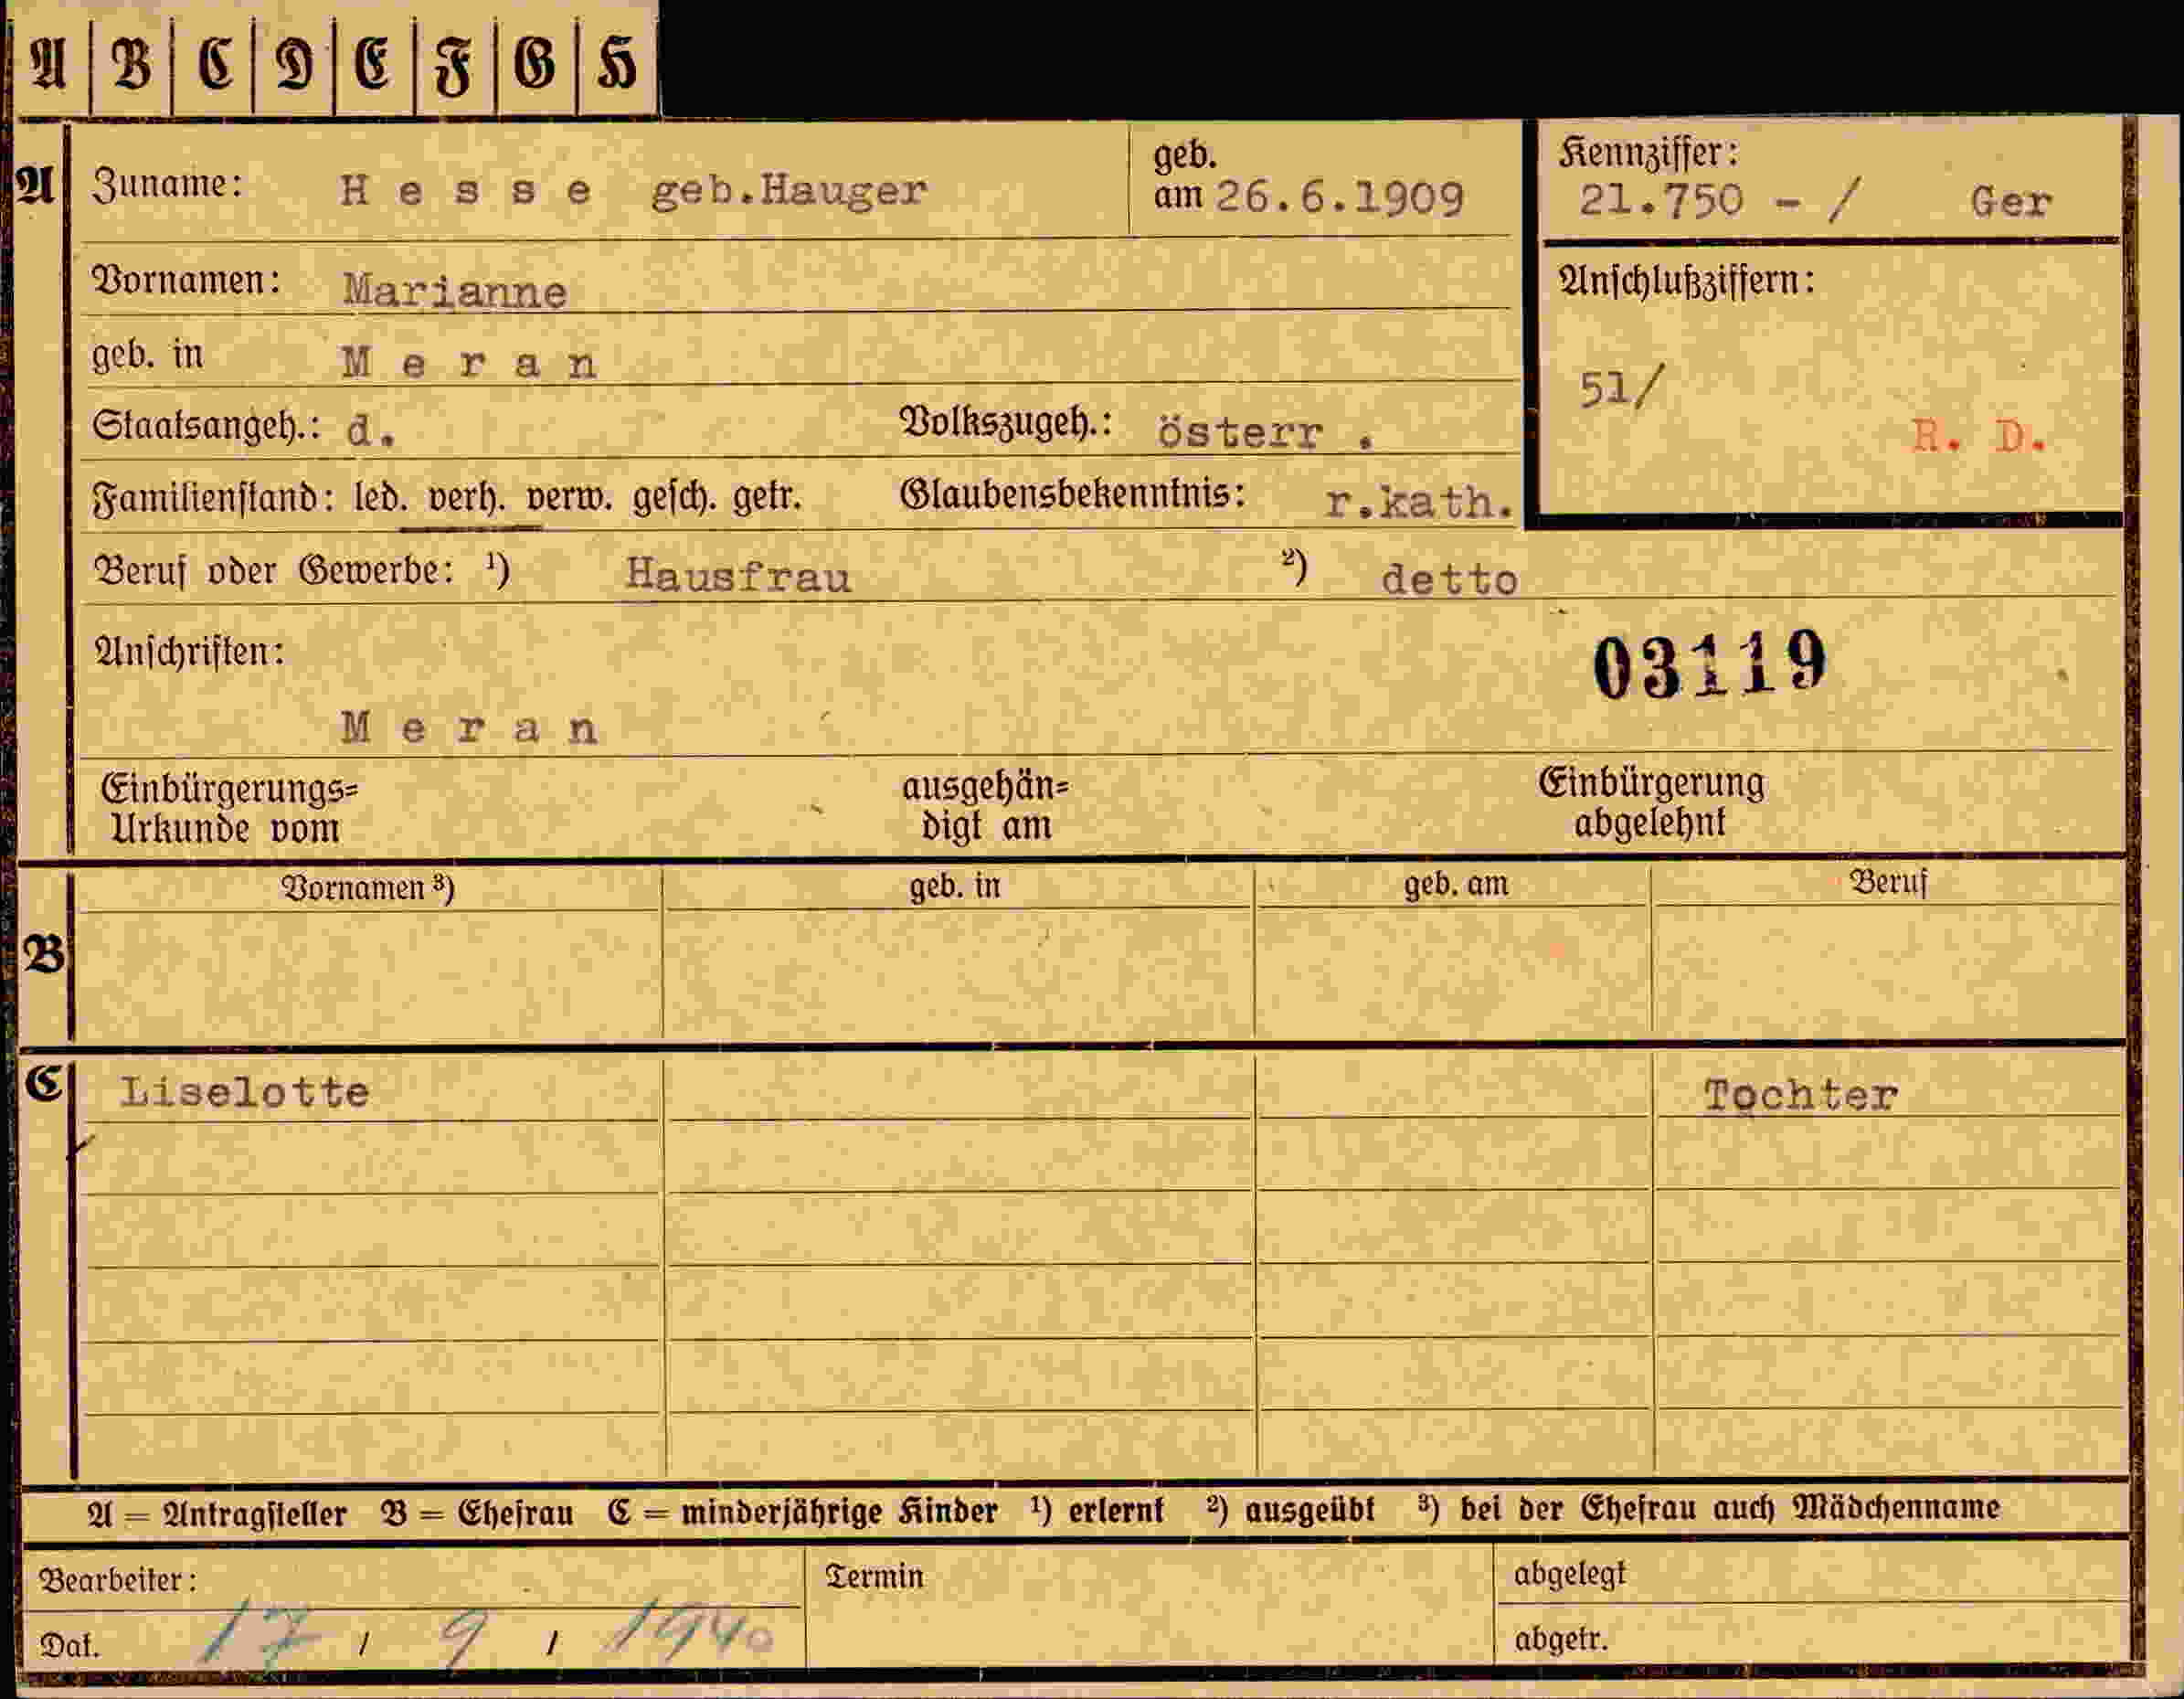 A B C D E F G H
A Zuname: Hesse geb.Hauger geb. am 26.6.1909
Kennziffer:
21.750 - / Ger
Vornamen: Marianne
Anschlußziffern:
geb. in Meran
51/
Staatsangeh.: d. Volkszugeh.: österr .
R. D.
Familienstand: led. verh. verw. gesch. getr. Glaubensbekenntnis: r.kath.
Beruf oder Gewerbe: ¹) Hausfrau ²) detto
Anschriften:
03119
Meran
Einbürgerungs= ausgehän= Einbürgerung
Urkunde vom digt am abgelehnt
Vornamen ³) geb. in geb. am Beruf
B
C Liselotte Tochter
A = Antragsteller B = Ehefrau C = minderjährige Kinder ¹) erlernt ²) ausgeübt ³) bei der Ehefrau auch Mädchenname
Bearbeiter: Termin abgelegt
Dat. 17 / 9 / 1940 abgetr.